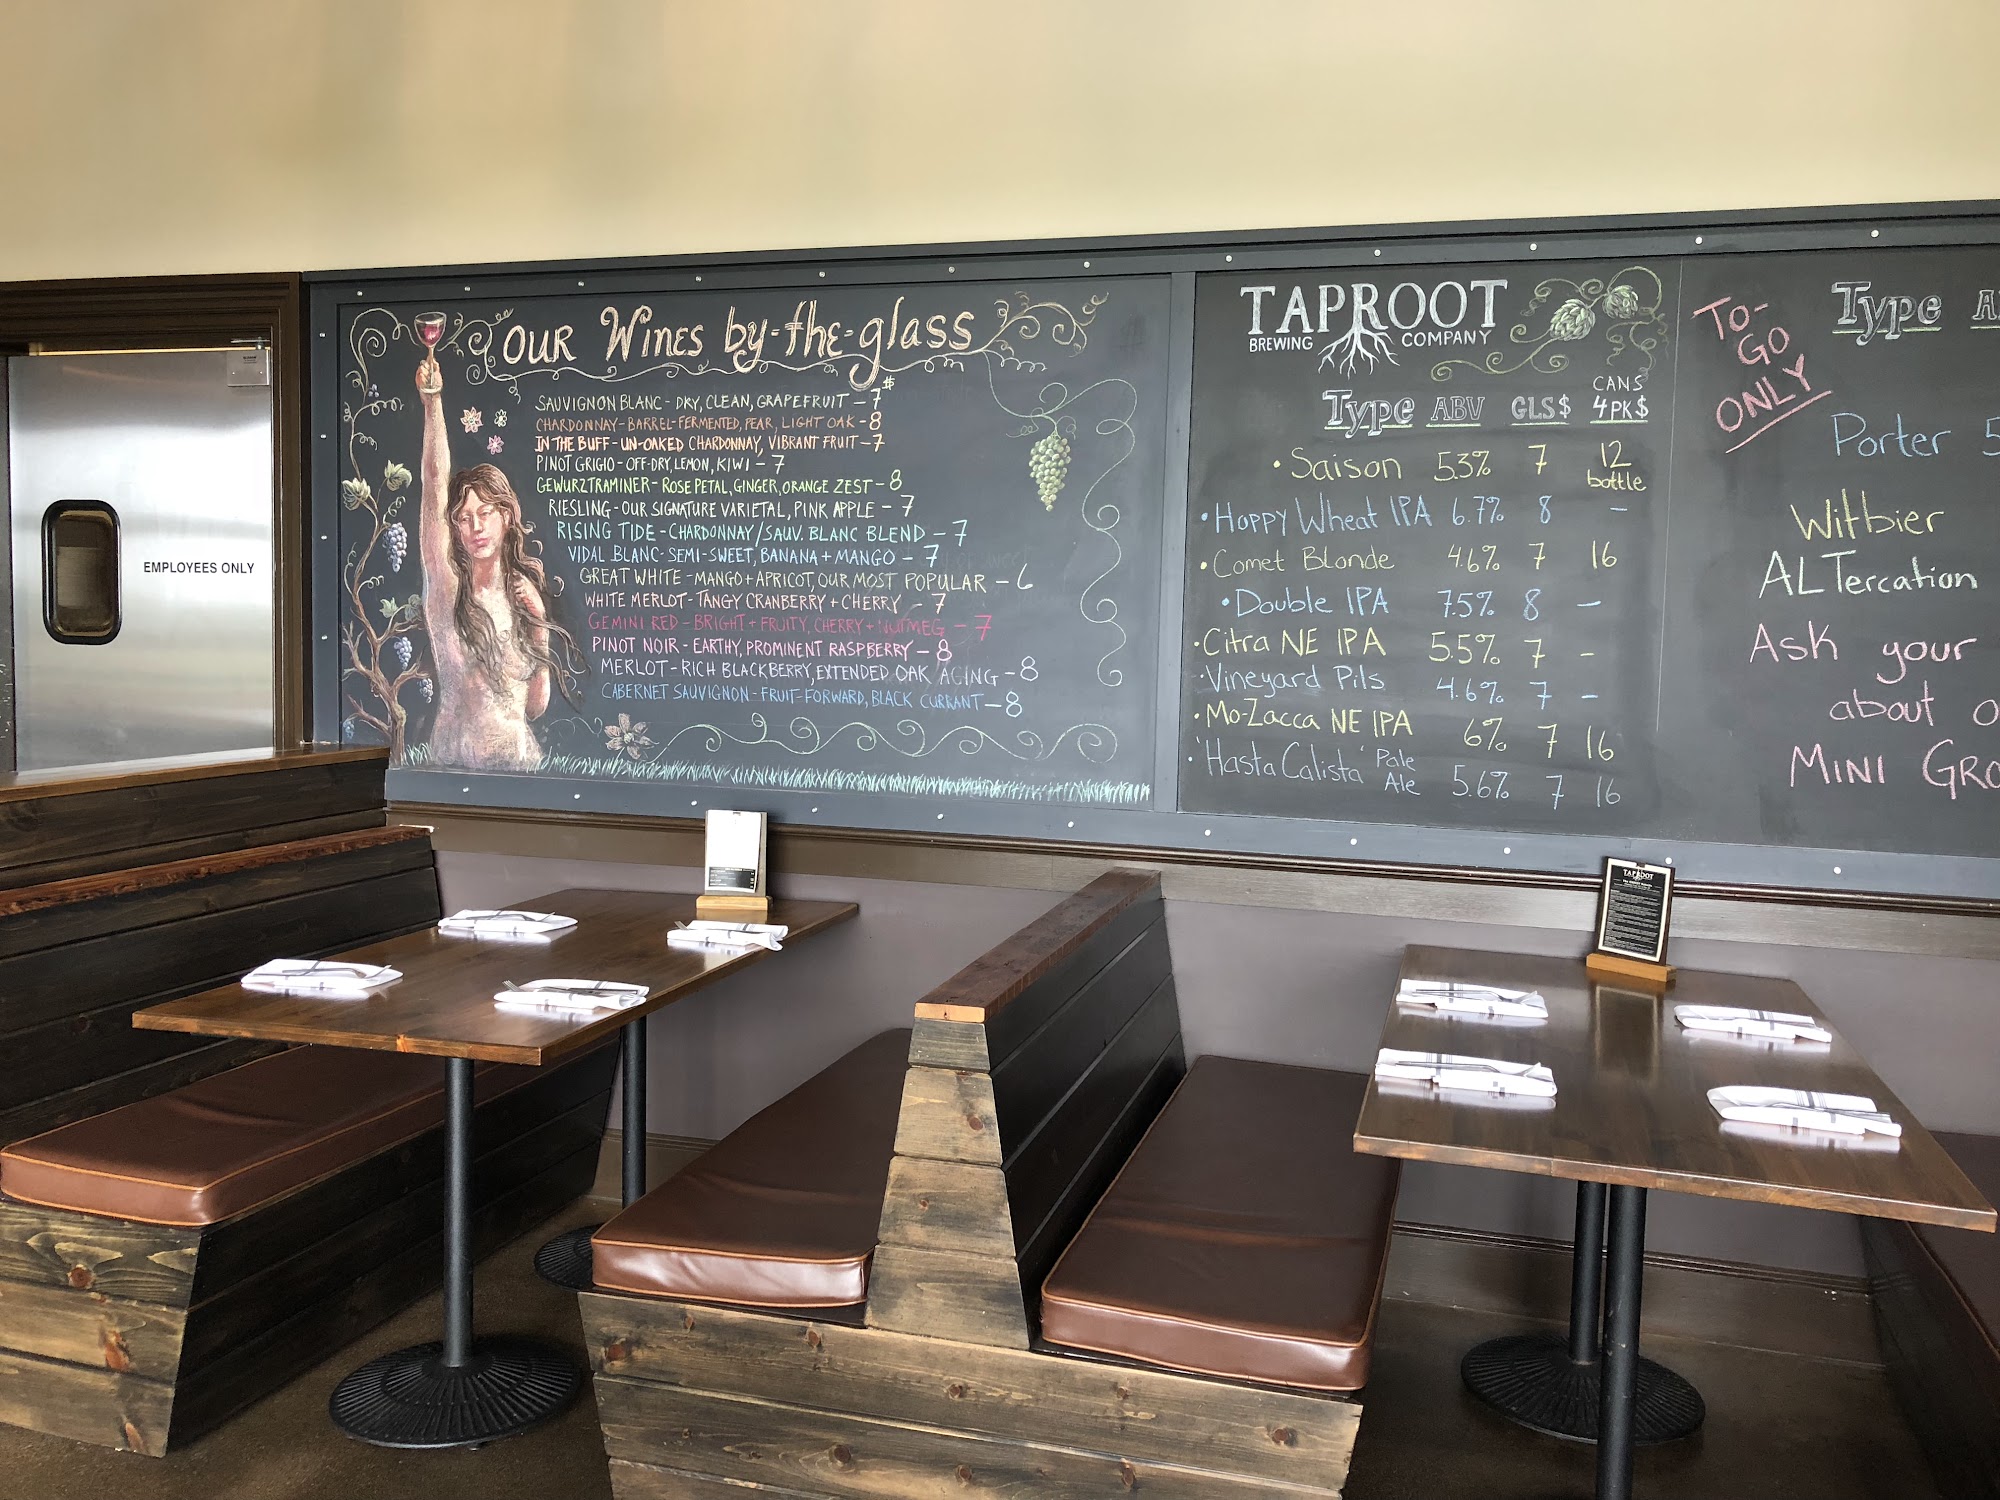 EMPLOYEES ONLY
OUR WINES by-the-glass
$
SAUVIGNON BLANC - DRY, CLEAN, GRAPEFRUIT - 7
CHARDONNAY - BARREL-FERMENTED, PEAR, LIGHT OAK - 8
IN THE BUFF - UN-OAKED CHARDONNAY, VIBRANT FRUIT - 7
PINOT GRIGIO - OFF-DRY, LEMON, KIWI - 7
GEWURZTRAMINER - ROSE PETAL, GINGER, ORANGE ZEST - 8
RIESLING - OUR SIGNATURE VARIETAL, PINK APPLE - 7
RISING TIDE - CHARDONNAY/SAUV. BLANC BLEND - 7
VIDAL BLANC - SEMI-SWEET, BANANA + MANGO - 7
GREAT WHITE - MANGO + APRICOT, OUR MOST POPULAR - 6
WHITE MERLOT - TANGY CRANBERRY + CHERRY - 7
GEMINI RED - BRIGHT + FRUITY, CHERRY + NUTMEG - 7
PINOT NOIR - EARTHY, PROMINENT RASPBERRY - 8
MERLOT - RICH BLACKBERRY, EXTENDED OAK AGING - 8
CABERNET SAUVIGNON - FRUIT-FORWARD, BLACK CURRANT - 8
TAPROOT
BREWING COMPANY
CANS
Type ABV GLS$ 4PK$
• Saison 5.3% 7 12
bottle
• Hoppy Wheat IPA 6.7% 8 -
• Comet Blonde 4.6% 7 16
• Double IPA 7.5% 8 -
• Citra NE IPA 5.5% 7 -
• Vineyard Pils 4.6% 7 -
• Mo-Zacca NE IPA 6% 7 16
• 'Hasta Calista' Pale
Ale 5.6% 7 16
TO-
GO
ONLY
Type
Porter 5
Witbier
ALTercation
Ask your
about
MINI GRO
TAPROOT